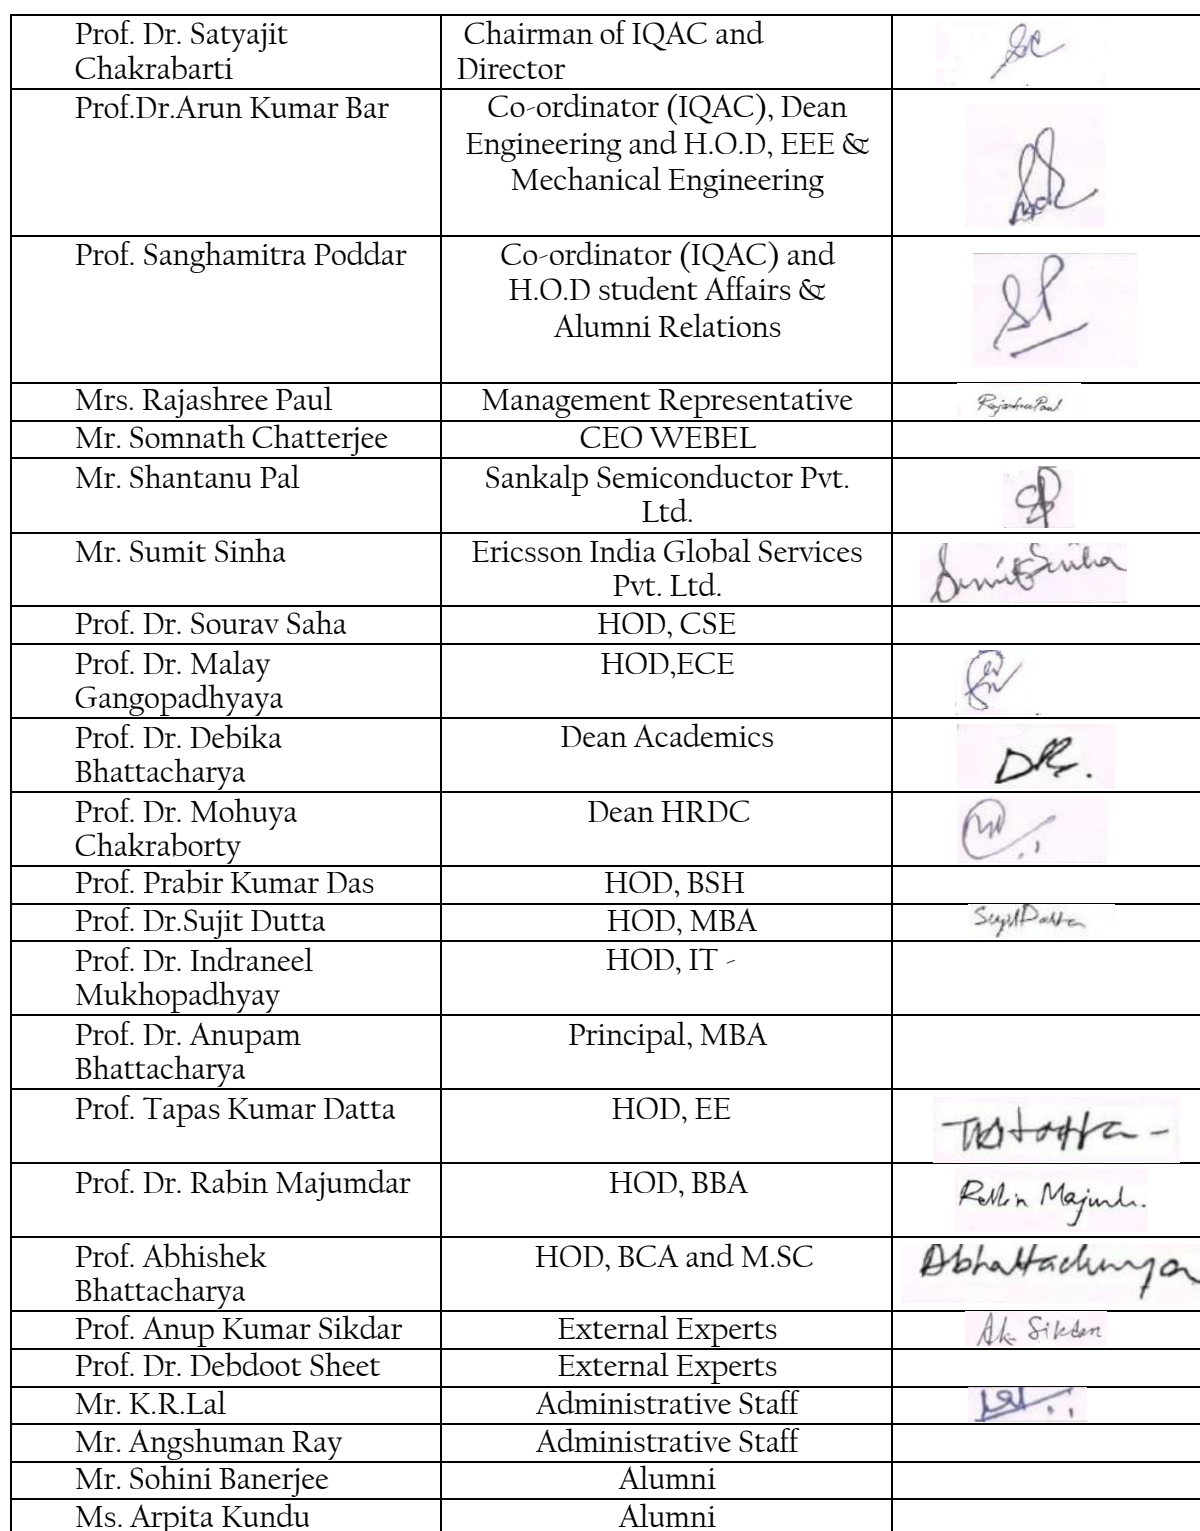 Prof. Dr. Satyajit
Chakrabarti
Chairman of IQAC and
Director
SC
Prof.Dr.Arun Kumar Bar
Co-ordinator (IQAC), Dean
Engineering and H.O.D, EEE &
Mechanical Engineering
Prof. Sanghamitra Poddar
Co-ordinator (IQAC) and
H.O.D student Affairs &
Alumni Relations
SP
Mrs. Rajashree Paul
Management Representative
Rajashree Paul
Mr. Somnath Chatterjee
CEO WEBEL
Mr. Shantanu Pal
Sankalp Semiconductor Pvt.
Ltd.
Mr. Sumit Sinha
Ericsson India Global Services
Pvt. Ltd.
Sumit Sinha
Prof. Dr. Sourav Saha
HOD, CSE
Prof. Dr. Malay
Gangopadhyaya
HOD,ECE
Prof. Dr. Debika
Bhattacharya
Dean Academics
Prof. Dr. Mohuya
Chakraborty
Dean HRDC
Prof. Prabir Kumar Das
HOD, BSH
Prof. Dr.Sujit Dutta
HOD, MBA
Sujit Dutta
Prof. Dr. Indraneel
Mukhopadhyay
HOD, IT -
Prof. Dr. Anupam
Bhattacharya
Principal, MBA
Prof. Tapas Kumar Datta
HOD, EE
Prof. Dr. Rabin Majumdar
HOD, BBA
Prof. Abhishek
Bhattacharya
HOD, BCA and M.SC
Abhattacharya
Prof. Anup Kumar Sikdar
External Experts
Ak Sikdar
Prof. Dr. Debdoot Sheet
External Experts
Mr. K.R.Lal
Administrative Staff
Mr. Angshuman Ray
Administrative Staff
Mr. Sohini Banerjee
Alumni
Ms. Arpita Kundu
Alumni